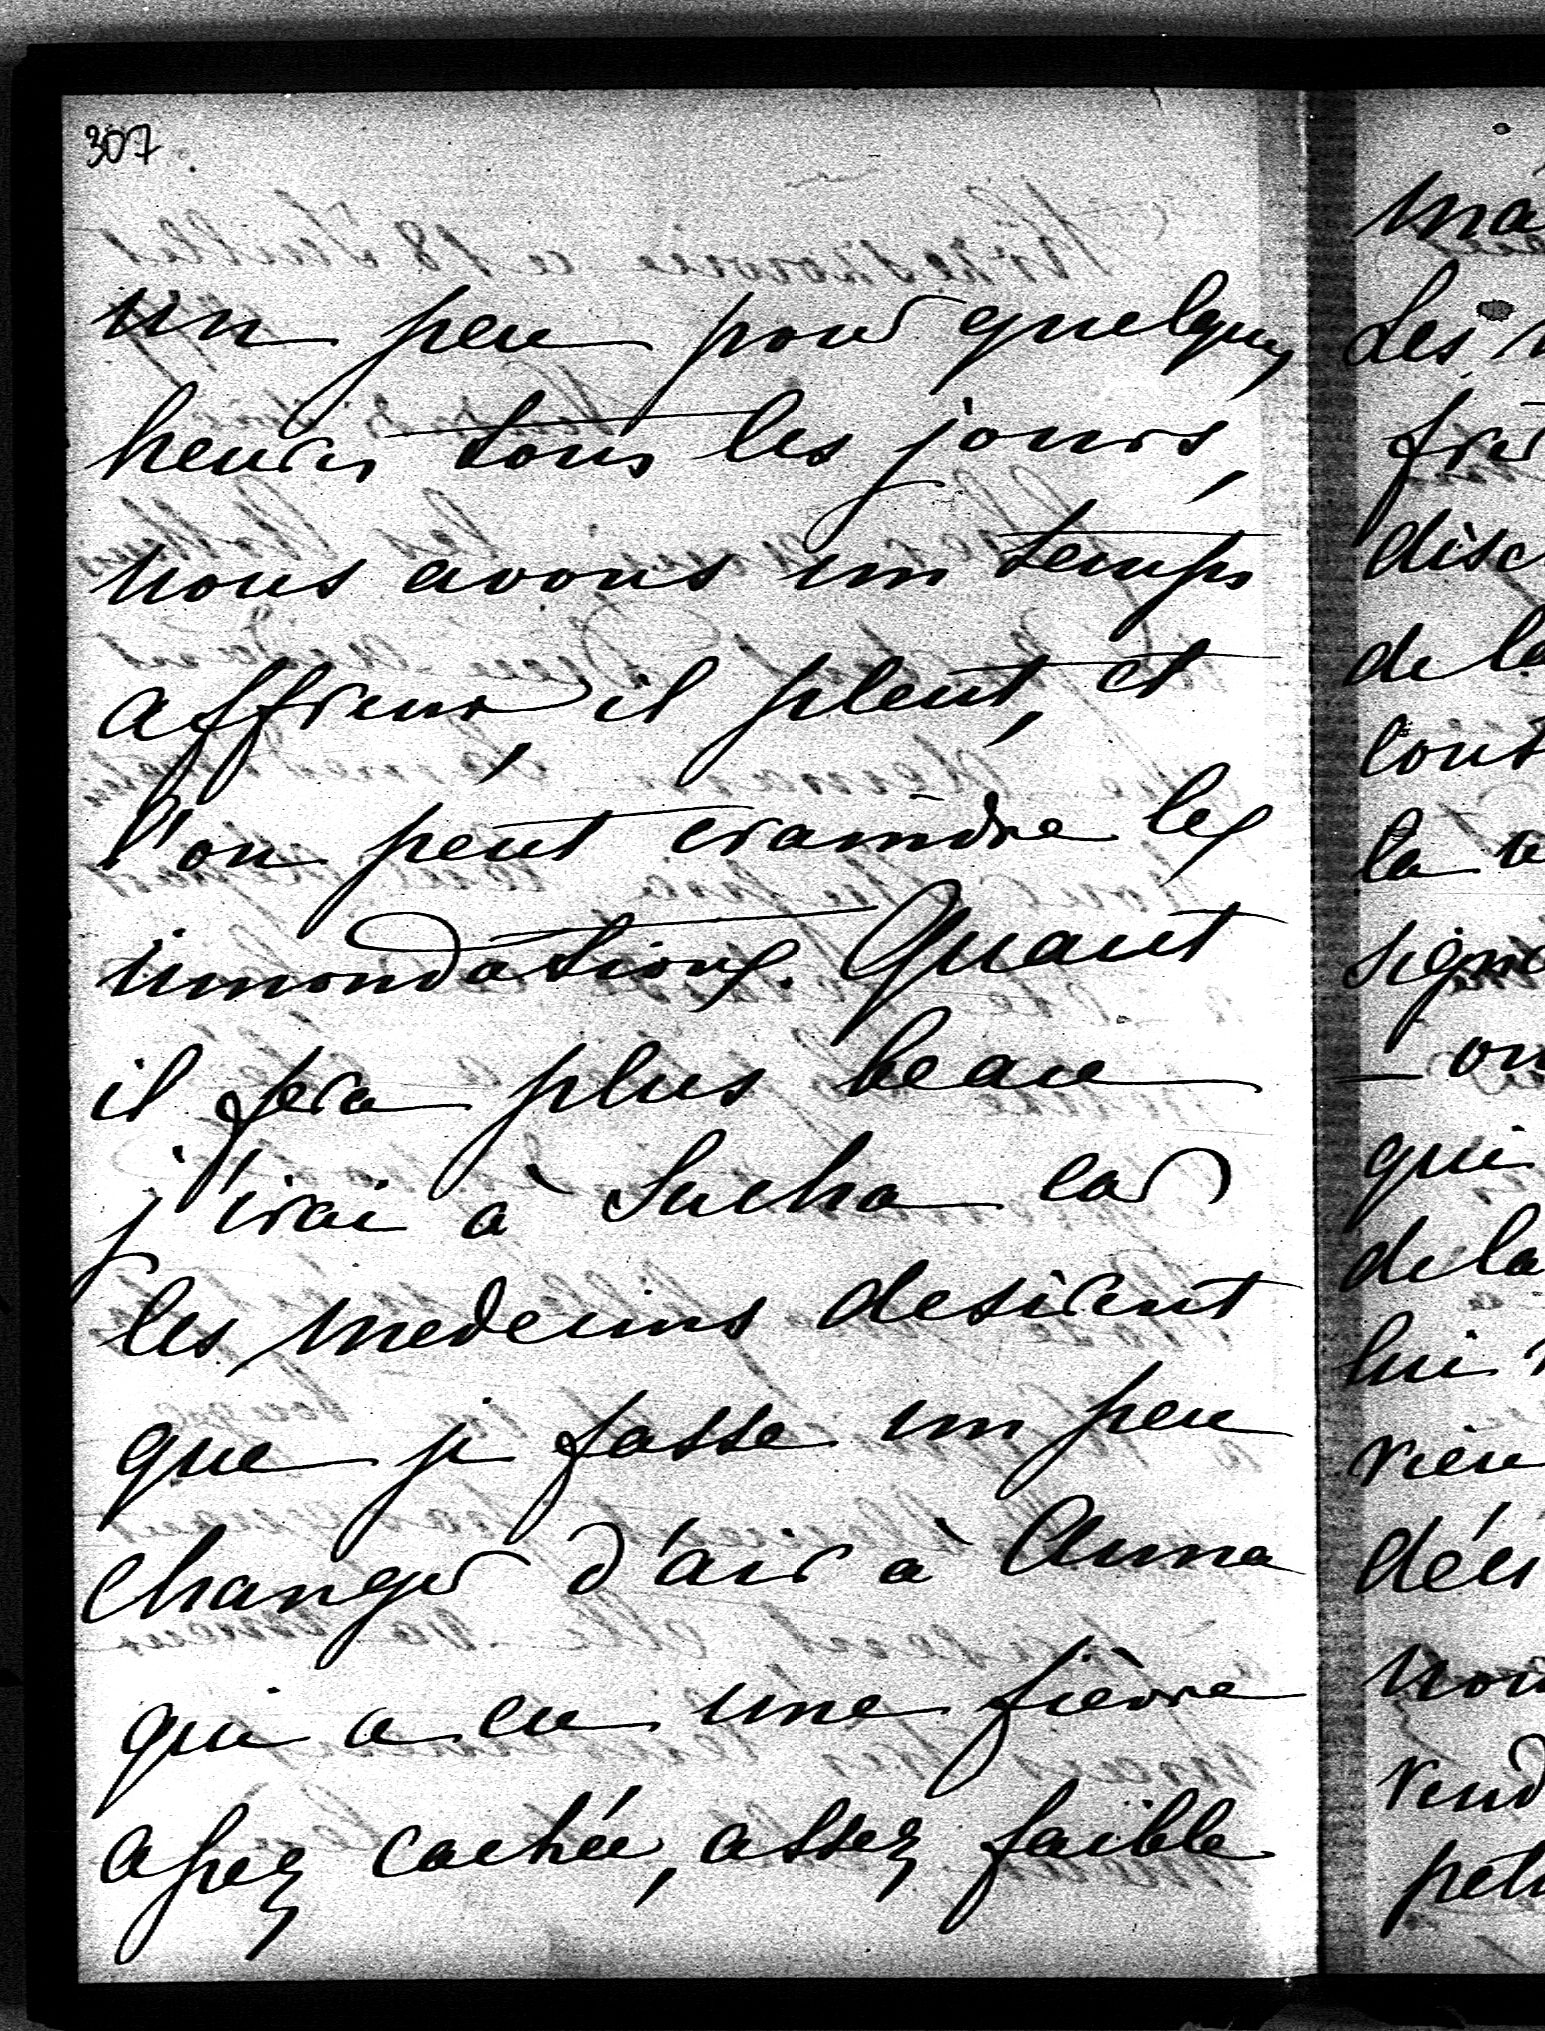 307
un peu pour quelques
heures tous les jours,
nous avons un temps
affreux, il pleut, et
l'on peut craindre les
innondations. Quant
il fera plus beau
j'irai à Sucha car
les medecins desirent
que je fasse un peu
changer d'air à Anna
qui a eu une fièvre
cachée, assez faible
ma
Les
disc
de la
cont
la
sign
on
qui
de la
lui
rien
déci
nou
rend
peti